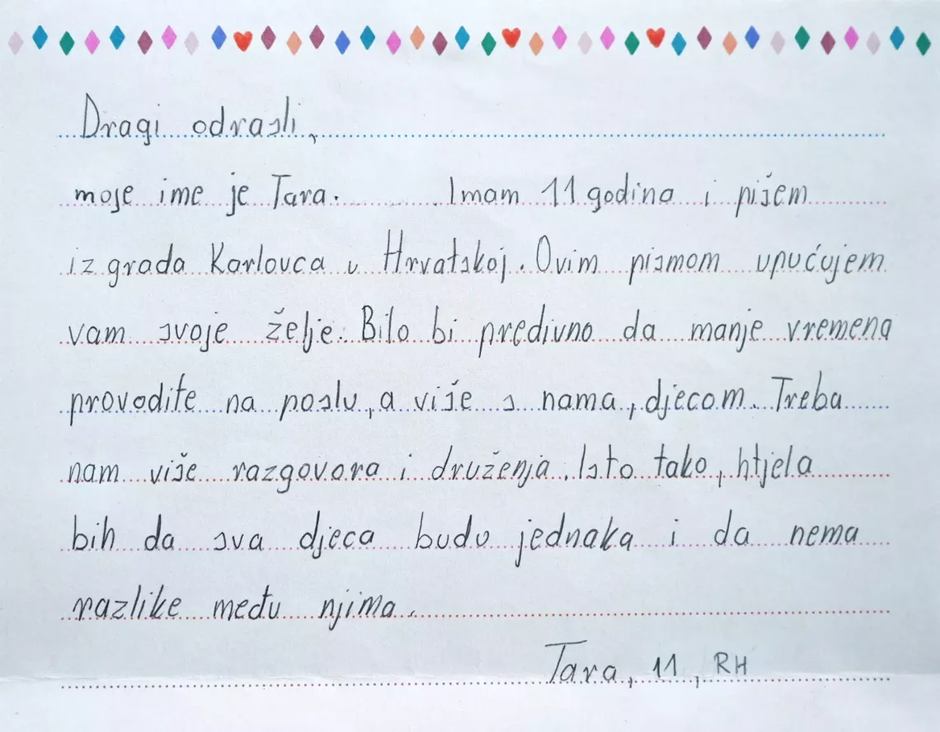 Dragi odrasli,
moje ime je Tara. Imam 11 godina i pišem
iz grada Karlovca u Hrvatskoj. Ovim pismom upućujem
vam svoje želje. Bilo bi predivno da manje vremena
provodite na poslu, a više s nama, djecom. Treba
nam više razgovora i druženja. Isto tako, htjela
bih da sva djeca budu jednaka i da nema
razlike među njima.
Tara, 11, RH